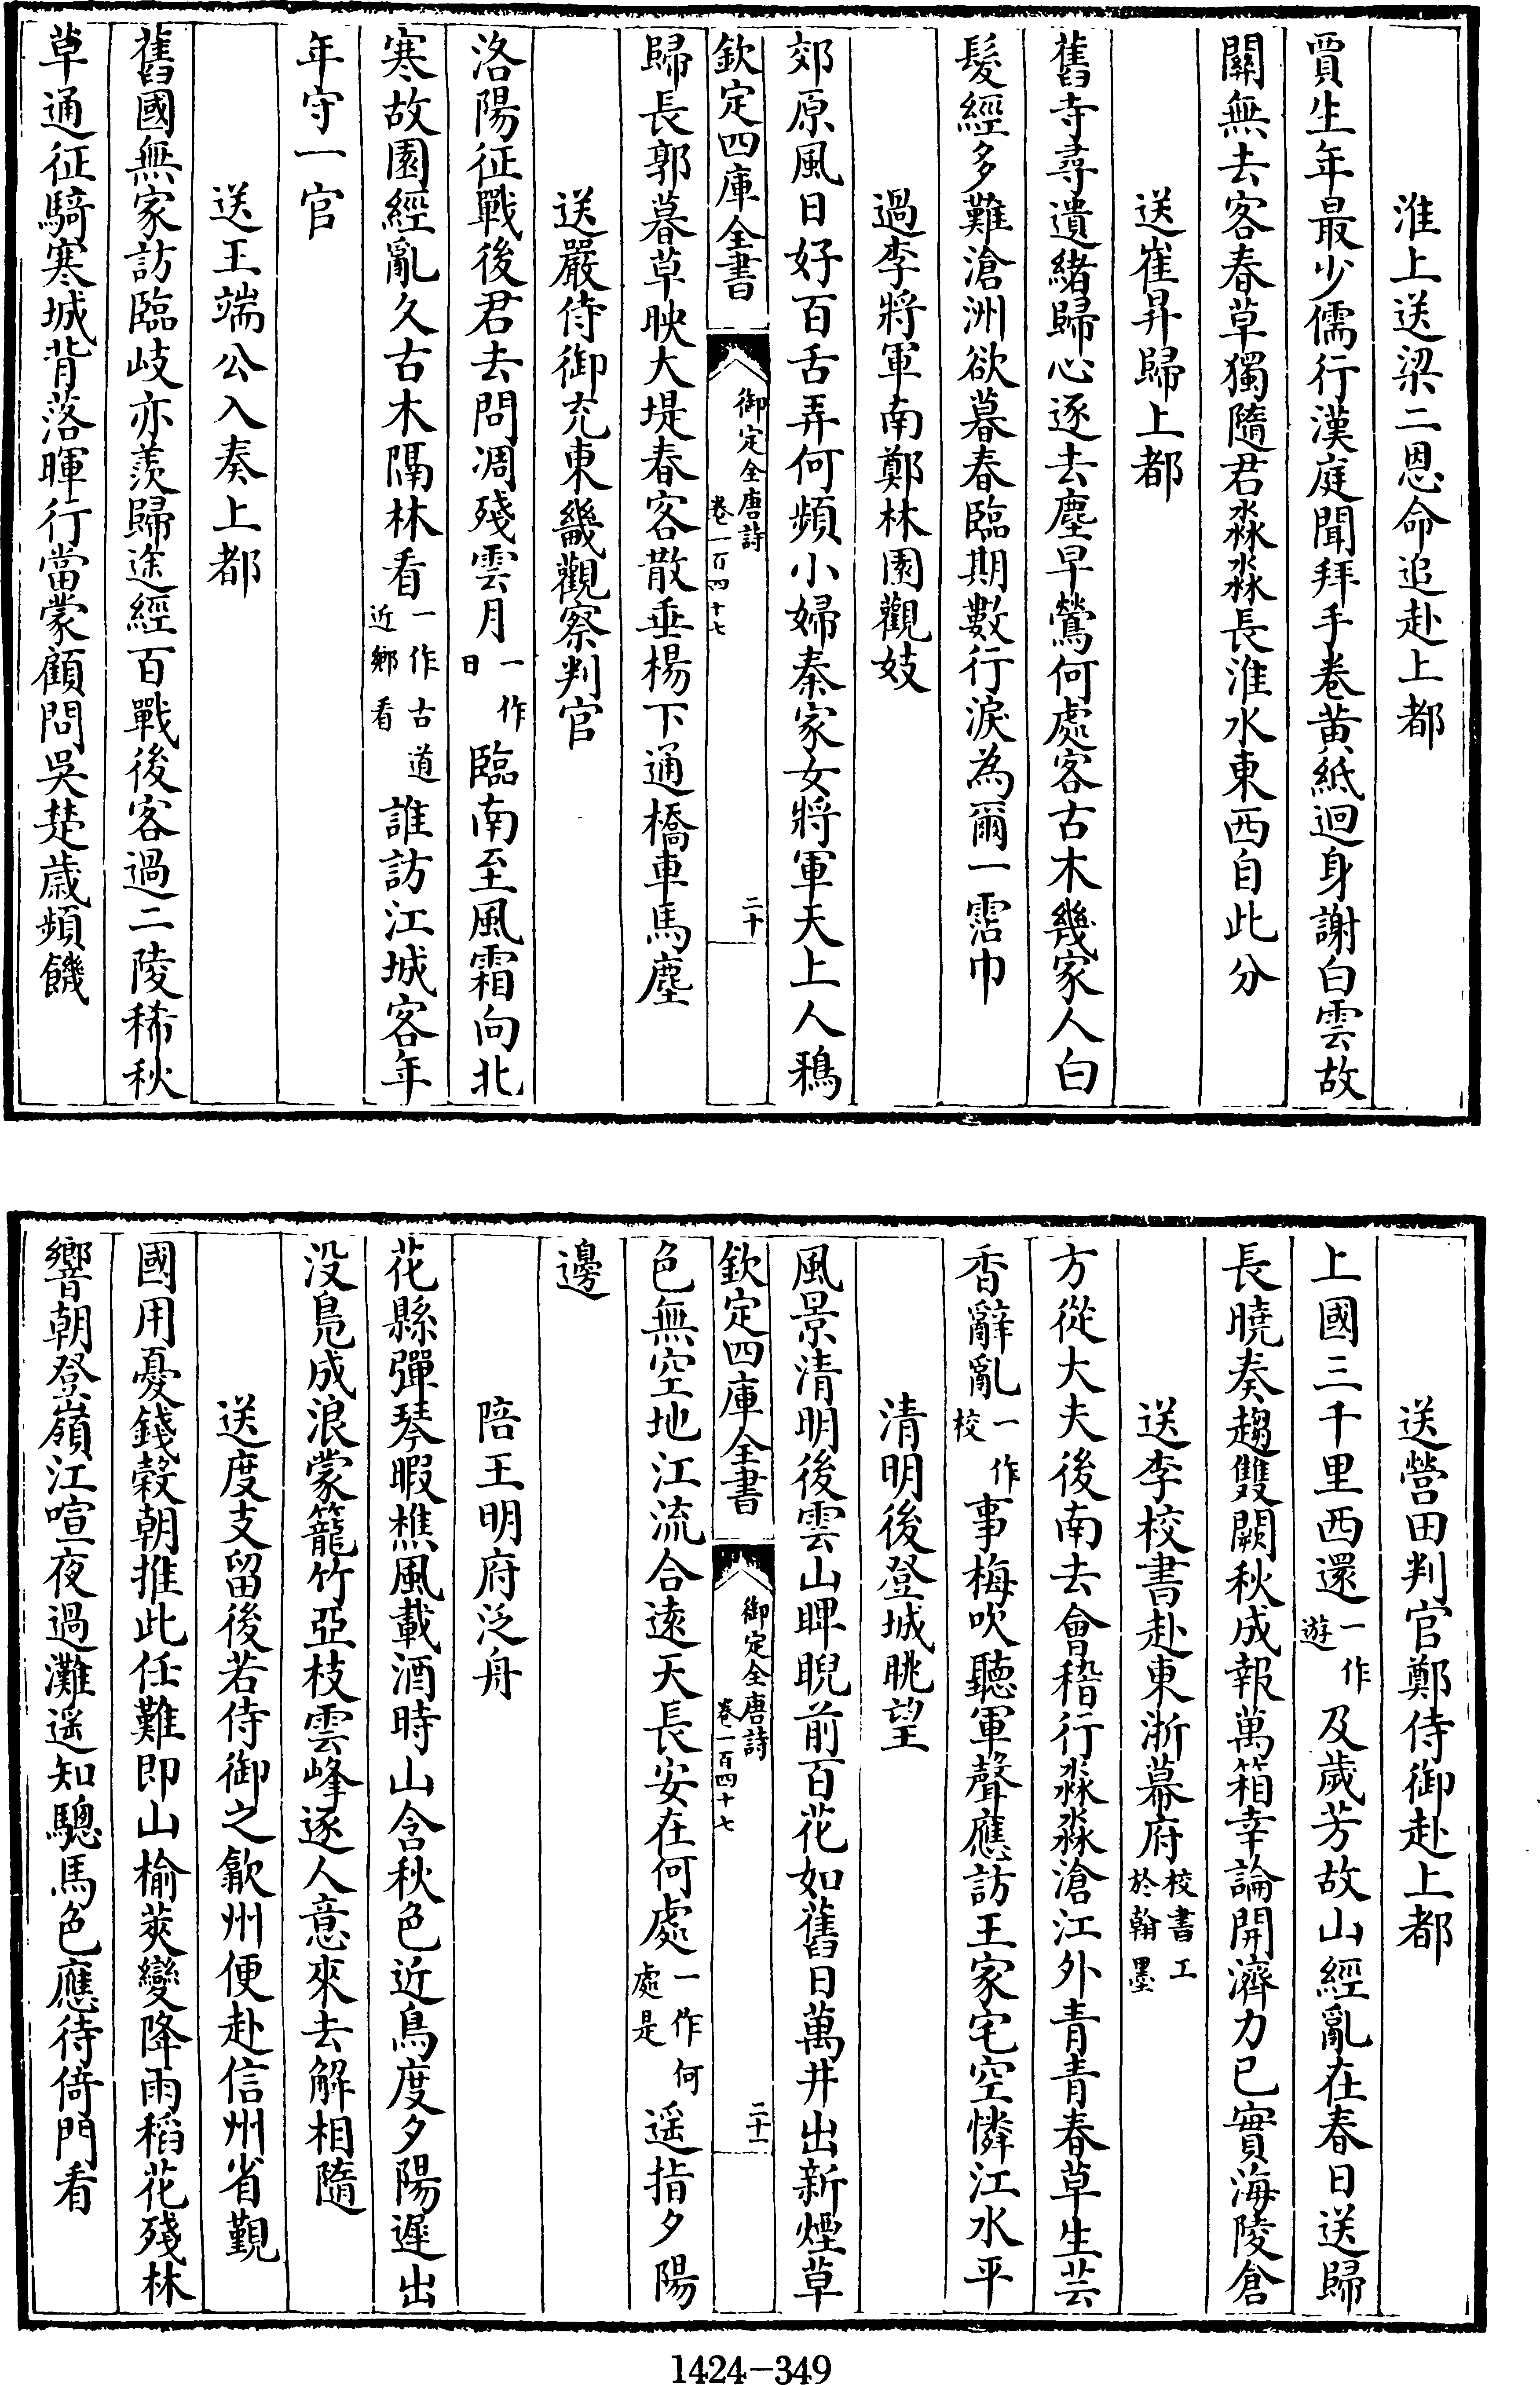 淮上送梁二恩命追赴上都
賈生年最少儒行漢庭聞拜手卷黄紙迴身謝白雲故
關無去客春草獨隨君淼淼長淮水東西自此分
送崔昇歸上都
舊寺尋遺緒歸心逐去塵早鶯何處客古木幾家人白
髮經多難滄洲欲暮春臨期數行淚為爾一霑巾
過李將軍南鄭林園觀妓
郊原風日好百舌弄何頻小婦秦家女將軍天上人鵶
欽定四庫全書
御定全唐詩
卷一百四十七
二十
歸長郭暮草映大堤春客散垂楊下通橋車馬塵
送嚴侍御充東畿觀察判官
洛陽征戰後君去問凋殘雲月一作日臨南至風霜向北
寒故園經亂久古木隔林看一作古道近鄉看誰訪江城客年
年守一官
送王端公入奏上都
舊國無家訪臨岐亦羨歸途經百戰後客過二陵稀秋
草通征騎寒城背落暉行當蒙顧問吳楚歲頻饑
送營田判官鄭侍御赴上都
上國三千里西還一作遊及歲芳故山經亂在春日送歸
長曉奏趨雙闕秋成報萬箱幸論開濟力已實海陵倉
送李校書赴東浙幕府校書工於翰墨
方從大夫後南去會稽行淼淼滄江外青青春草生芸
香辭亂一作校事梅吹聽軍聲應訪王家宅空憐江水平
清明後登城眺望
風景清明後雲山睥睨前百花如舊日萬井出新煙草
欽定四庫全書
御定全唐詩
卷一百四十七
二十一
色無空地江流合遠天長安在何處一作何處是遥指夕陽
邊
陪王明府泛舟
花縣彈琴暇樵風載酒時山含秋色近鳥度夕陽遲出
没鳧成浪蒙籠竹亞枝雲峰逐人意來去解相隨
送度支留後若侍御之歙州便赴信州省覲
國用憂錢穀朝推此任難即山榆莢變降雨稻花殘林
響朝登嶺江喧夜過灘遥知驄馬色應待倚門看
1424-349